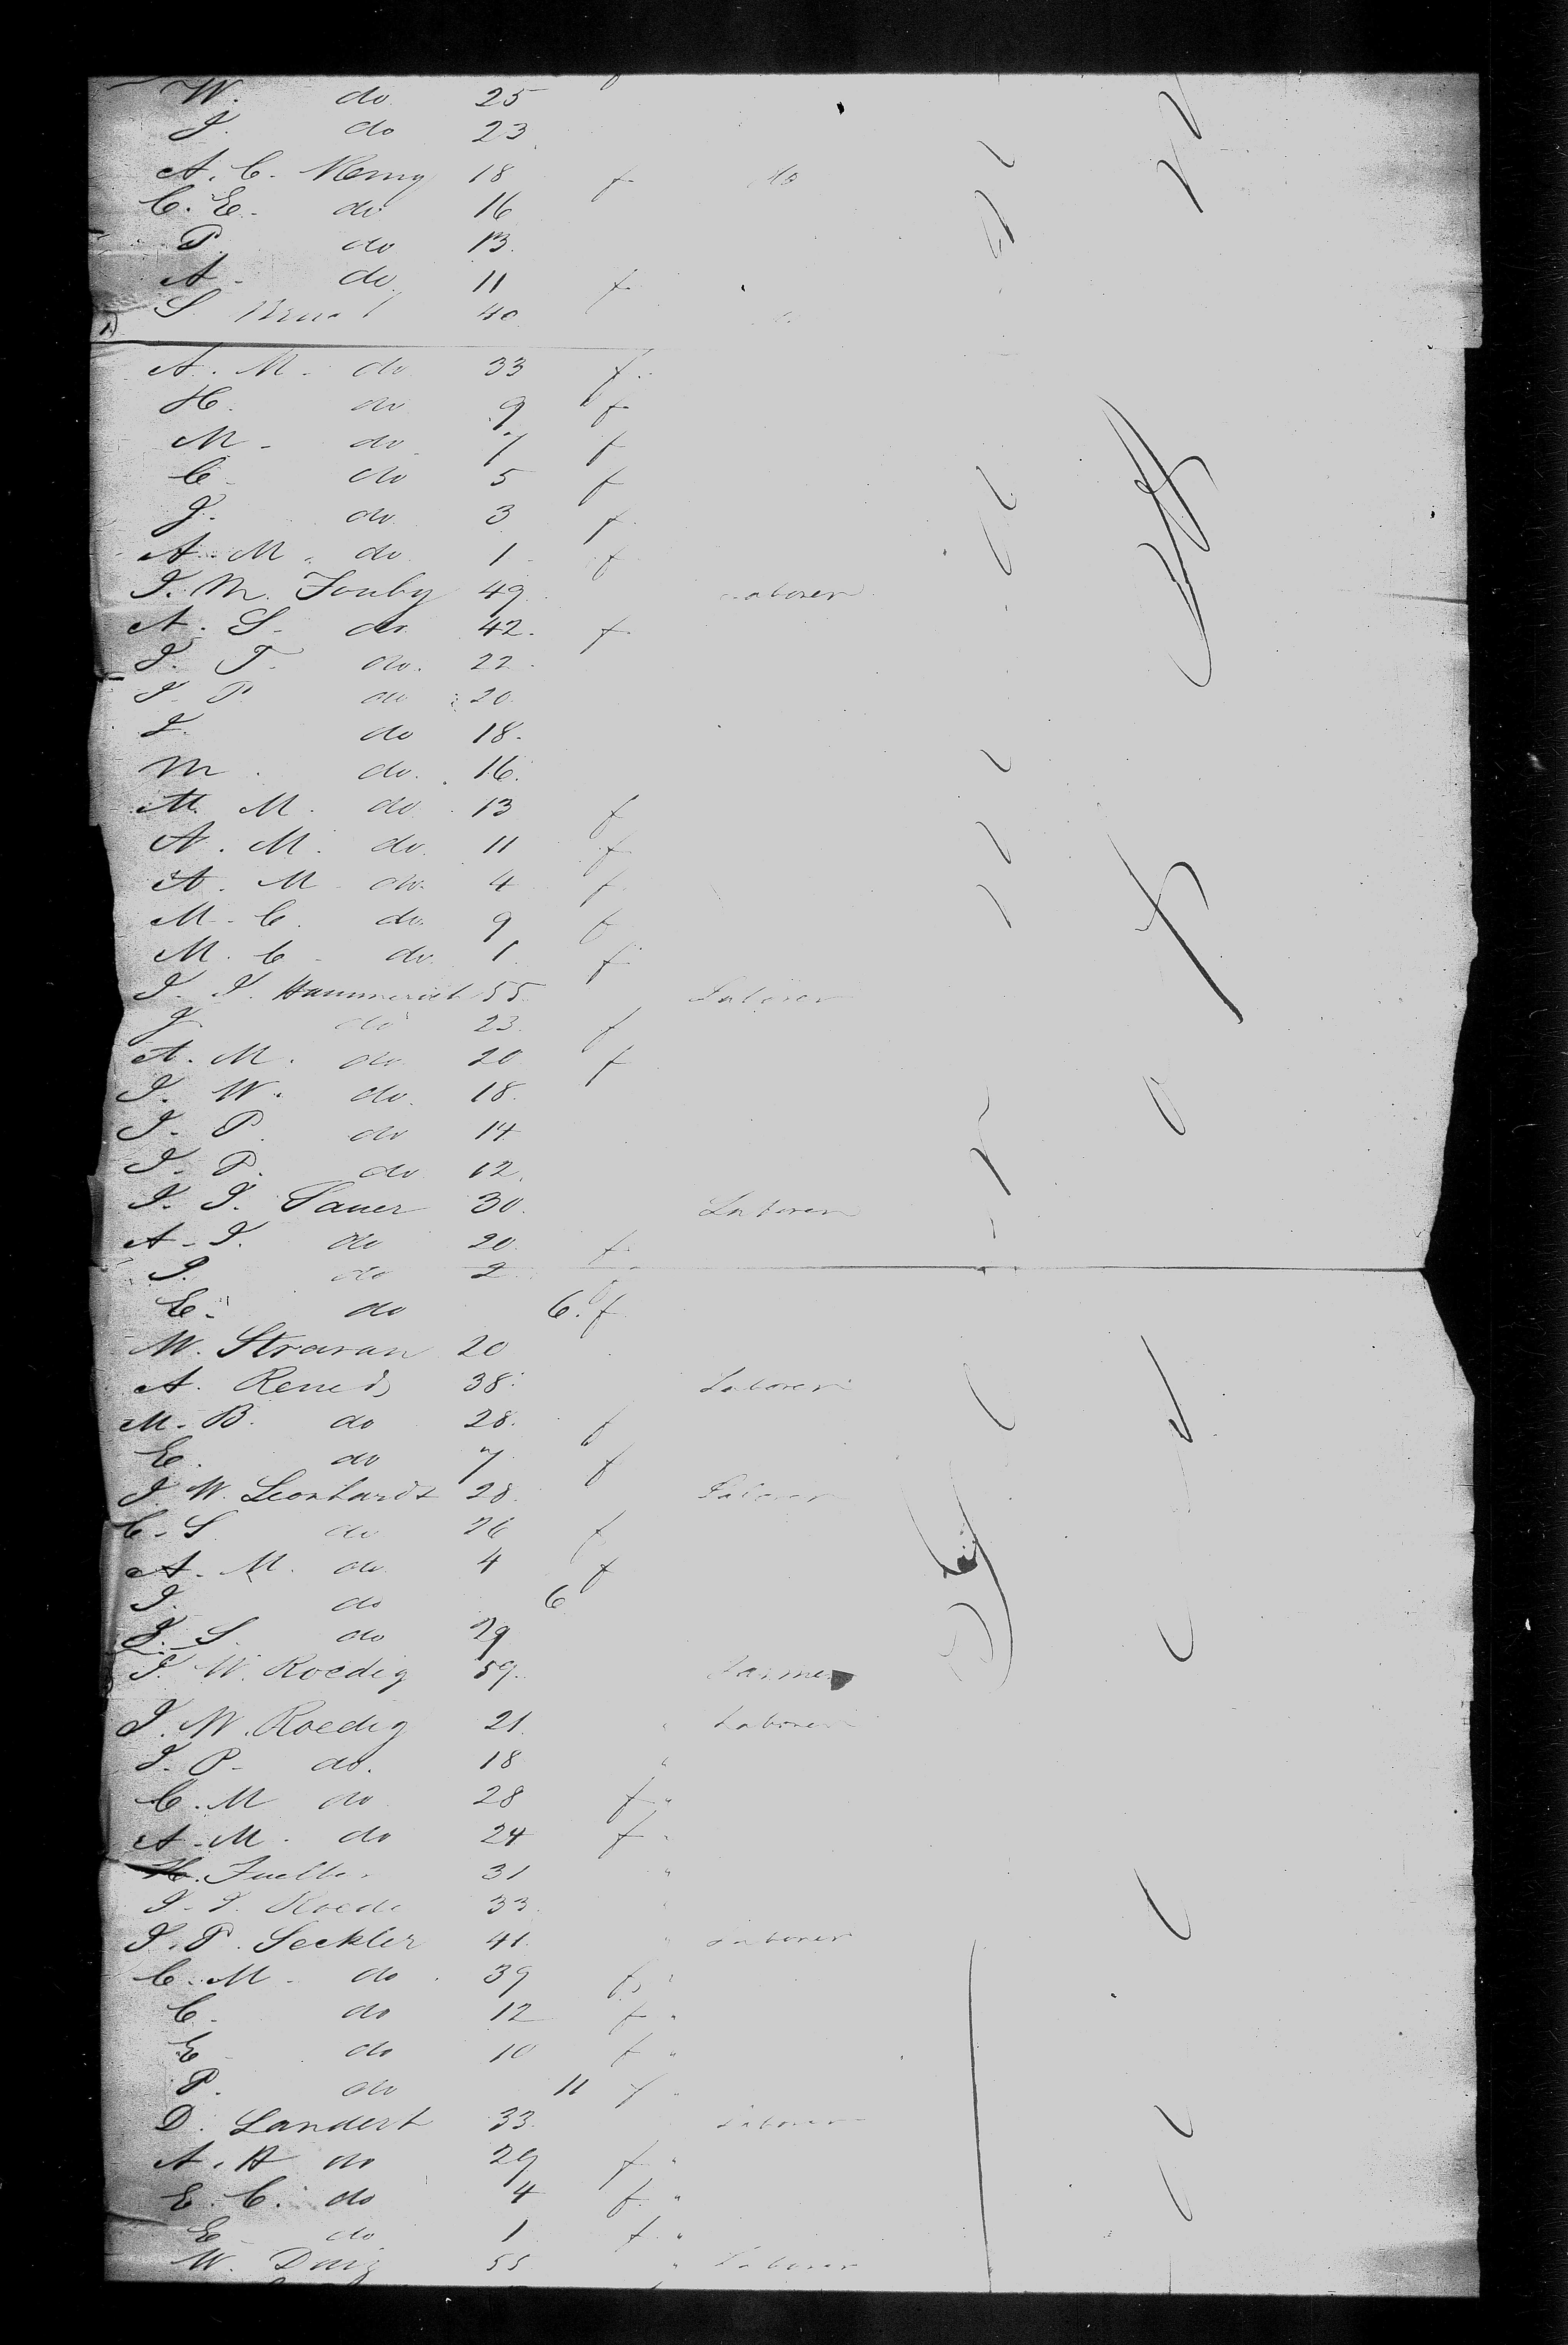 W. do 25
J. do 23
A. C. 18 f do
C. E. do 16
P. do 13
A. do 11 f
S. 40
A. M. do 33 f
H. do 9 f
M. do 7 f
C. do 5 f
J. do 3 f
A. M. do 1 f
J. M. Fouby 49 Laborer
A. S. do 42. f
J. T. do. 22.
J. P. do 20.
J. do 18.
M. do. 16.
M. M. do 13 f
A. M. do. 11 f
A. M. do. 4 f
M. C. do. 9 f
M. C. do. 1 f
J. J. Hammerich 55 Laborer
J. do 23. f
A. M. do 20 f
J. W. do. 18.
J. P. do 14
J. P. do 12.
J. J. Sauer 30. Laborer
A. J. do 20. f
J. do 2
E. do 6. f
M. Stravan 20
A. 38. Laborer
M. B. do 28. f
E. do 7 f
J. W. Leonhardt 28. Laborer
C. S. do 26 f
A. M. do 4 f
J. do 6
J. S. do 29
J. W. Roedig 59. Farmer
J. W. Roedig 21. " Laborer
J. P. do. 18 "
C. M do 28 f "
A. M. do 24 f "
H. 31 "
J. J. 33. "
J. P. Seckler 41. " Laborer
C. M. do. 39 f "
C. do 12 f "
E. do 10 f "
P. do 11 f "
D. Landert 33. Laborer
A. H do 29 f "
E. C. do 4 f. "
E. do 1 f "
W. 55 " Laborer